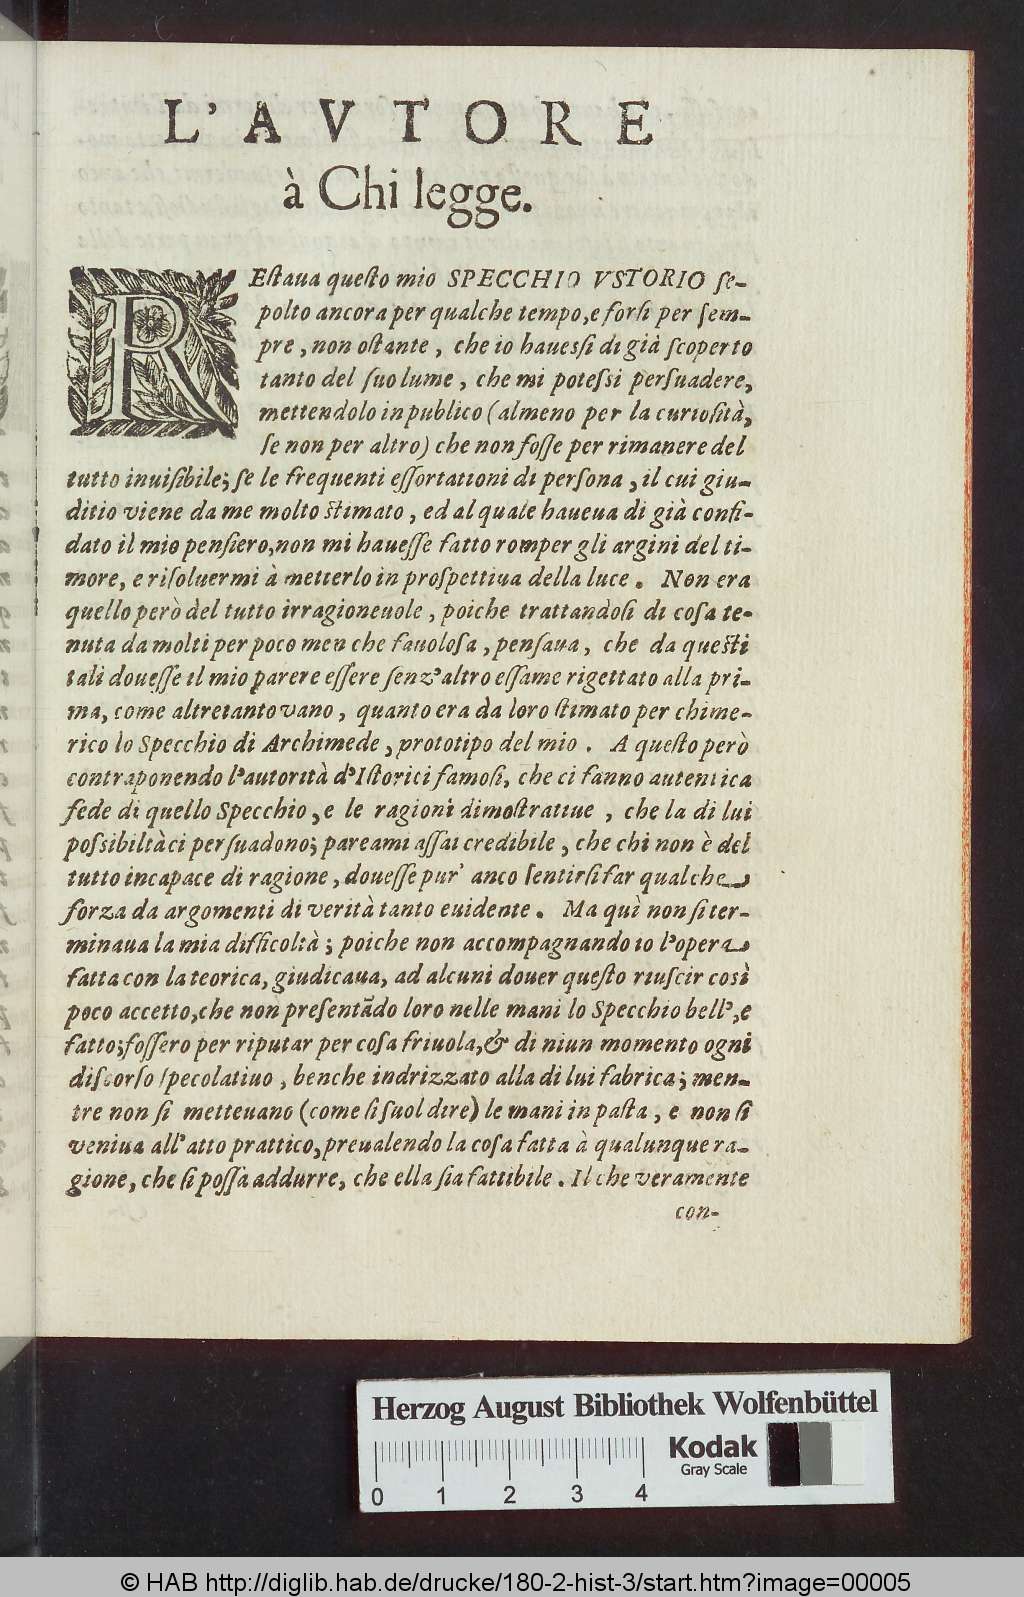 L'AVTORE
à Chi legge.
REſtaua queſto mio SPECCHIO VSTORIO ſe-
polto ancora per qualche tempo, e forſi per ſem-
pre, non oſtante, che io haueſſi di già ſcoperto
tanto del ſuo lume, che mi poteſſi perſuadere,
mettendolo in publico (almeno per la curioſità,
ſe non per altro) che non foſſe per rimanere del
tutto inuiſibile; ſe le frequenti eſſortationi di perſona, il cui giu-
ditio viene da me molto ſtimato, ed al quale haueua di già confi-
dato il mio penſiero, non mi haueſſe fatto romper gli argini del ti-
more, e riſoluermi à metterlo in proſpettiua della luce. Non era
quello però del tutto irragioneuole, poiche trattandoſi di coſa te-
nuta da molti per poco men che fauoloſa, penſaua, che da queſti
tali doueſſe il mio parere eſſere ſenz'altro eſſame rigettato alla pri-
ma, come altretanto vano, quanto era da loro ſtimato per chime-
rico lo Specchio di Archimede, prototipo del mio. A queſto però
contraponendo l'autorità d'Iſtorici famoſi, che ci fanno autentica
fede di quello Specchio, e le ragioni dimoſtratiue, che la di lui
poſſibiltà ci perſuadono; pareami aſſai credibile, che chi non è del
tutto incapace di ragione, doueſſe pur' anco ſentirſi far qualche
forza da argomenti di verità tanto euidente. Ma quì non ſi ter-
minaua la mia difficoltà; poiche non accompagnando io l'opera
fatta con la teorica, giudicaua, ad alcuni douer queſto riuſcir così
poco accetto, che non preſentãdo loro nelle mani lo Specchio bell', e
fatto; foſſero per riputar per coſa friuola, & di niun momento ogni
diſcorſo ſpecolatiuo, benche indrizzato alla di lui fabrica; men-
tre non ſi metteuano (come ſi ſuol dire) le mani in paſta, e non ſi
veniua all' atto prattico, preualendo la coſa fatta à qualunque ra-
gione, che ſi poſſa addurre, che ella ſia fattibile. Il che veramente
con-
Herzog August Bibliothek Wolfenbüttel
Kodak
Gray Scale
0 1 2 3 4
© HAB http://diglib.hab.de/drucke/180-2-hist-3/start.htm?image=00005